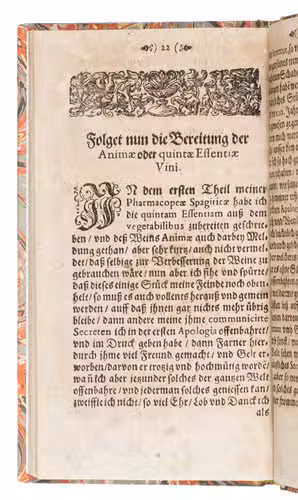 ·ⲋ5) 22 (3·
Folget nun die Bereitung der
Animæ oder quintæ Essentiæ
Vini.
IN dem ersten Theil meiner
Pharmacopeæ Spagiricæ habe ich
die quintam Essentiam auß dem
vegetabilibus zubereiten geschrie-
ben / und deß Weins Animæ auch darbey Mel-
dung gethan / aber sehr kurtz / auch nicht vermel-
det / daß selbige zur Verbesserung der Weine zu
gebrauchen wäre / nun aber ich sihe und spürte /
daß dieses einige Stück meine Feinde noch oben
helt / so muß es auch vollents herauß und gemein
werden / auff daß jhnen gar nichts mehr übrig
bleibe / dann andere meine jhme communicirte
Secreten ich in der ersten Apologia offenbahret /
und im Druck geben habe / dann Farner hier-
durch jhme viel Freund gemacht / und Gelt er-
worben / darvon er trotzig und hochmütig wordē /
wañ sch aber jetzunder solches der gantzen Welt
offenbahre / und jederman solches geniessen kan /
zweiffle ich nicht / so viel Ehr / Lob und Danck ich
als